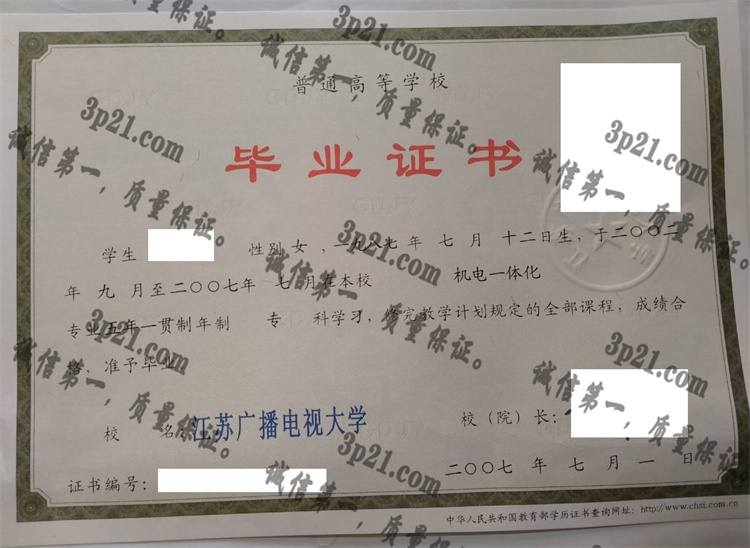 普通高等学校
毕业证书
学生 性别 女 ，一九八七 年 七 月 十二日生，于二〇〇二
年 九 月至二〇〇七年 七 月在本校 机电一体化
专业五年一贯制年制 专 科学习，修完教学计划规定的全部课程，成绩合
格，准予毕业
校 名：江苏广播电视大学
校（院）长：
二〇〇七 年 七 月 一 日
证书编号：
中华人民共和国教育部学历证书查询网址：http://www.chsi.com.cn
3p21.com
诚信第一，质量保证。